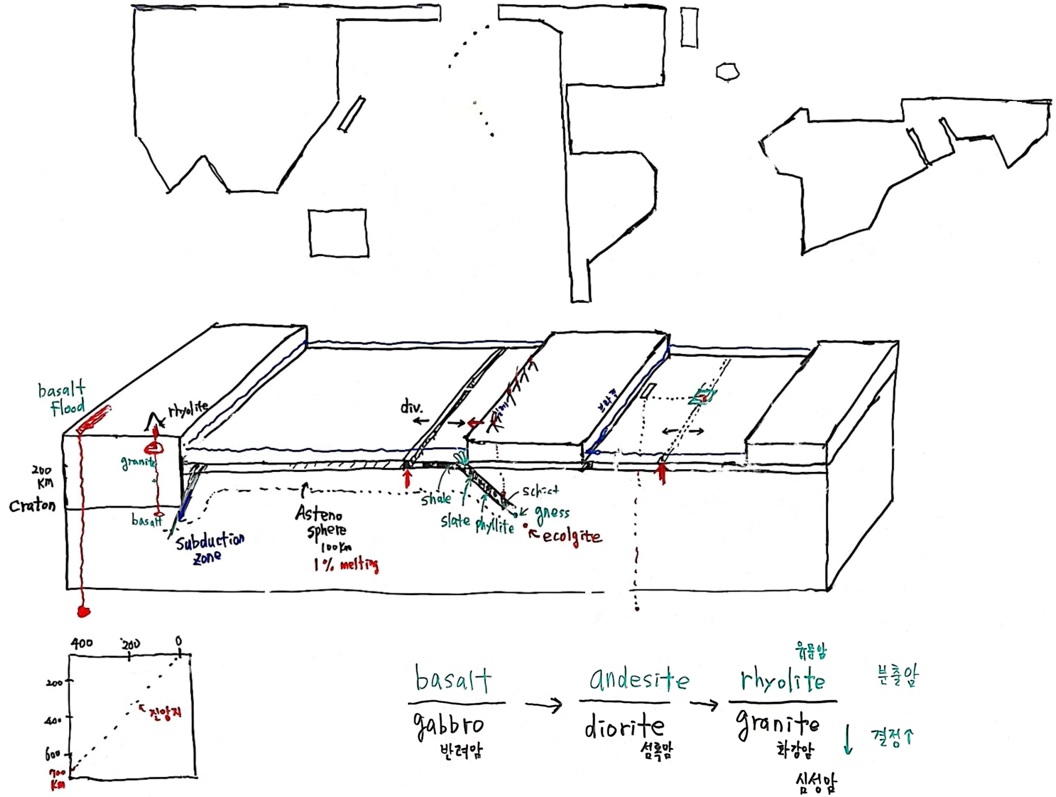 basalt
flood
rhyolite
granite
basalt
200
KM
Craton
subduction
zone
Asteno
sphere
100km
1% melting
div.
shale
slate phyllite
schist
gness
ecolgite
400 200 0
200
400
600
700
km
진앙지
basalt → andesite → rhyolite
gabbro diorite granite
유문암
분출암
반려암 섬록암 화강암
결정↑
심성암